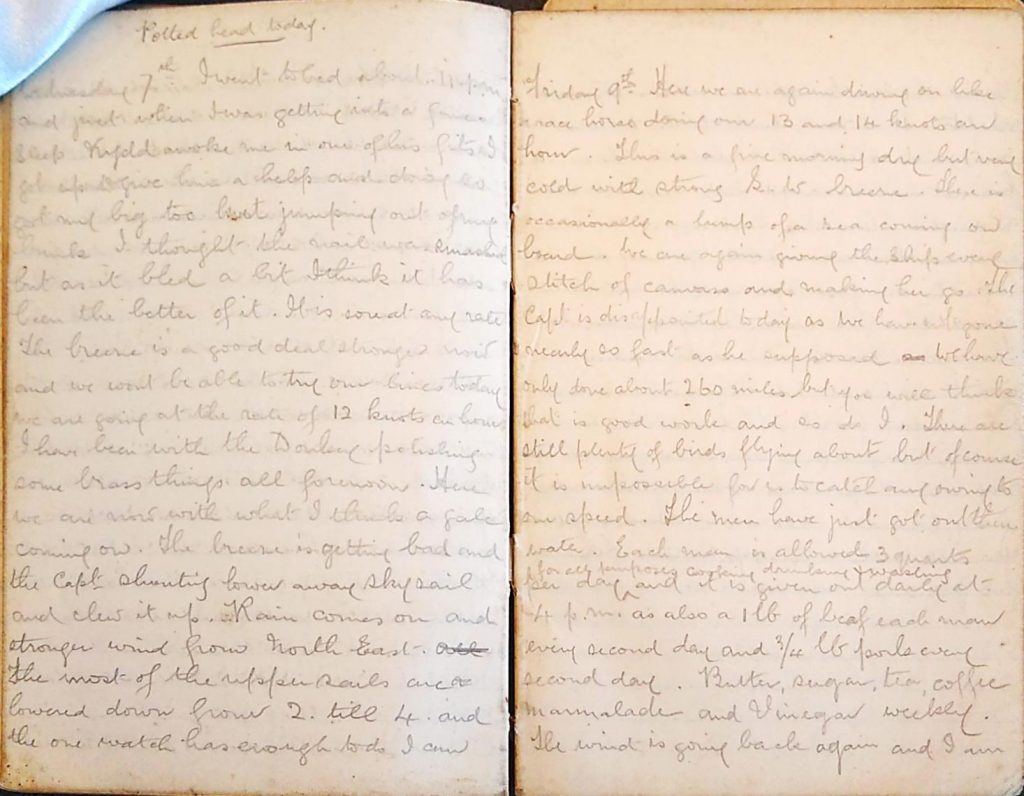 Potted head today.
Wednesday 7th I went to bed about 11 p.m
and just when I was getting into a fine
sleep Kydd awoke me in one of his fits I
got up to give him a help and doing so
got my big toe hurt jumping out of my
bunk I thought the nail was smashed
but as it bled a bit I think it has
been the better of it. It is sore at any rate
The breeze is a good deal stronger now
and we wont be able to try our lines today
we are going at the rate of 12 knots an hour
I have been with the Donkey polishing
some brass things all forenoon. Here
we are now with what I think a gale
coming on. The breeze is getting bad and
the Capt shouting lower away sky sail
and clew it up. Rain comes on and
stronger wind from North East.
The most of the upper sails are
lowered down from 2. till 4. and
the one watch has enough to do I can
Friday 9th Here we are again driving on like
a race horse doing our 13 and 14 knots an
hour. This is a fine morning dry but very
cold with strong S. W. breeze. There is
occasionally a lump of a sea coming on
board. We are again giving the ship every
stitch of canvass and making her go. The
Capt is disappointed today as we havent gone
nearly so fast as he supposed we have
only done about 260 miles but you will think
that is good work and so do I. There are
still plenty of birds flying about but of course
it is impossible for us to catch any owing to
our speed. The men have just got out their
water. Each man is allowed 3 quarts
for all purposes cooking drinking & washing
per day and it is given out daily at
4 p.m. as also a 1 lb of beaf each man
every second day and 3/4 lb pork every
second day. Butter, sugar, tea, coffee
marmalade and Vinegar weekly.
The wind is going back again and I am